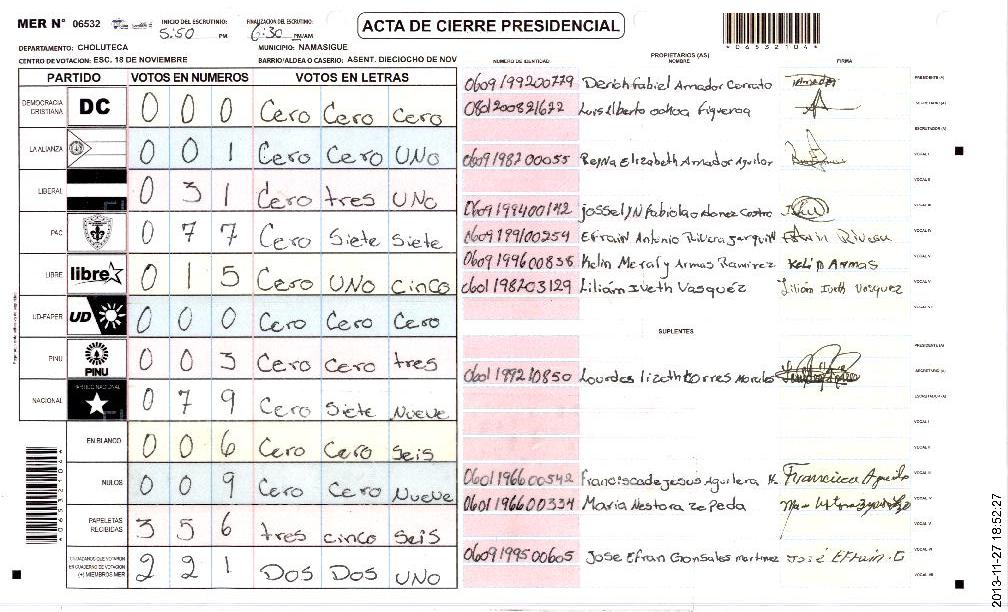 MER N° 06532
INICIO DEL ESCRUTINIO: 5:50 PM
FINALIZACION DEL ESCRUTINIO: 6:30 PM/AM
ACTA DE CIERRE PRESIDENCIAL
*06532104*
DEPARTAMENTO: CHOLUTECA
MUNICIPIO: NAMASIGUE
CENTRO DE VOTACION: ESC. 18 DE NOVIEMBRE
BARRIO/ALDEA O CASERIO: ASENT. DIECIOCHO DE NOV
PARTIDO VOTOS EN NUMEROS VOTOS EN LETRAS
DEMOCRACIA CRISTIANA DC 0 0 0 Cero Cero Cero
LA ALIANZA 0 0 1 Cero Cero UNO
LIBERAL 0 3 1 Cero tres UNO
PAC 0 7 7 Cero Siete Siete
LIBRE libre 0 1 5 Cero UNO cinco
UD-FAPER UD 0 0 0 Cero Cero Cero
PINU PINU 0 0 3 Cero Cero tres
NACIONAL PARTIDO NACIONAL 0 7 9 Cero Siete Nueve
EN BLANCO 0 0 6 Cero Cero Seis
NULOS 0 0 9 Cero Cero Nueve
PAPELETAS RECIBIDAS 3 5 6 tres cinco Seis
CIUDADANOS QUE VOTARON EN CUADERNO DE VOTACION (+) MIEMBROS MER 2 2 1 DOS DOS UNO
NUMERO DE IDENTIDAD PROPIETARIOS (AS) NOMBRE FIRMA
0609199200779 Derich fabiel Amador Corrato PRESIDENTE (A)
0801200821622 Luis Alberto ochoa Figueroa SECRETARIO (A)
ESCRUTADOR (A)
0609198200055 Reyna Elizabeth Amador Aguilar VOCAL I
VOCAL II
0609199400142 josselyN fabiola ordonez Castro VOCAL III
0609199100254 Efrain Antonio Rivera VOCAL IV
0609199600838 Kelin Merary Armas Ramirez Kelin Armas VOCAL V
0601198203129 Lilián Iveth Vasquéz Lilián Iveth Vasquez VOCAL V
SUPLENTES
PRESIDENTE (A)
0601199210850 Lourdes lizeth torres Morales SECRETARIO (A)
ESCRUTADOR (A)
VOCAL I
VOCAL II
0601196600542 Francisca de Jesus Aguilera M. Francisca VOCAL III
0601196600334 Maria Nestora zepeda VOCAL V
VOCAL V
0609199500605 Jose Efran Gonsales martinez José Efraín G VOCAL VI
VOCAL VII
2013-11-27 18:52:27